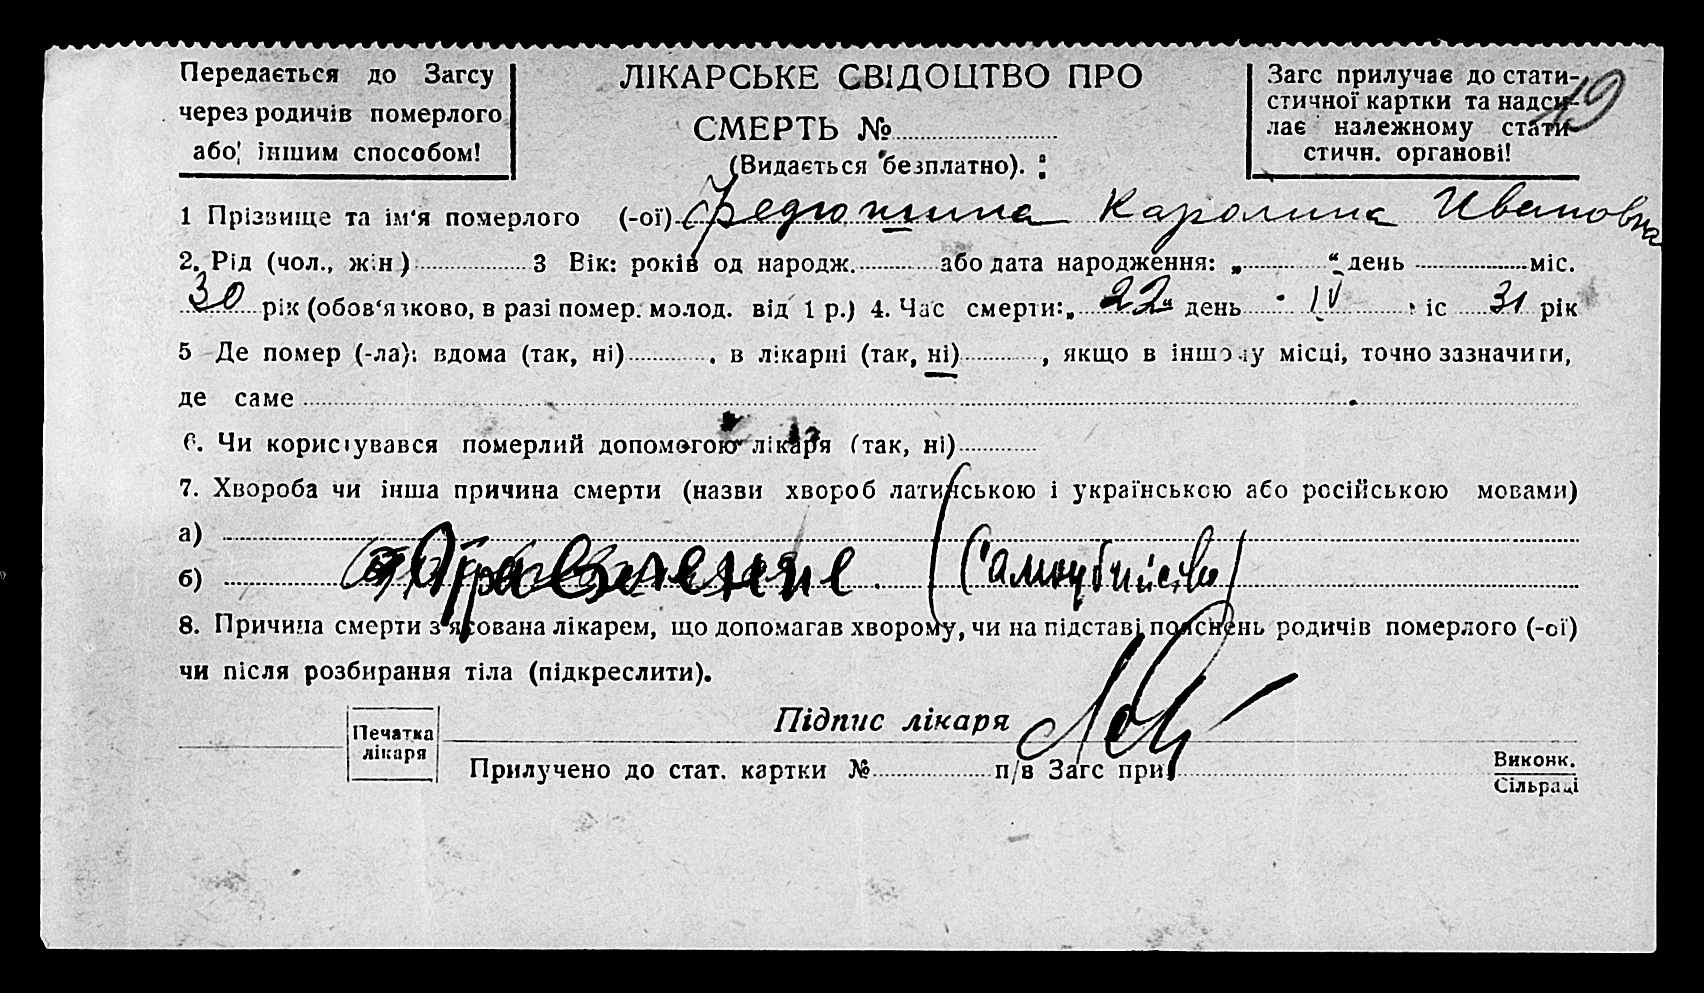 Передається до Загсу
через родичів померлого
або іншим способом!
ЛІКАРСЬКЕ СВІДОЦТВО ПРО
СМЕРТЬ №
(Видається безплатно).
Загс прилучає до стати-
стичної картки та надси-
лає належному стати
стичн. органові!
19
1 Прізвище та ім'я померлого (-ої) Федюшина Каролина Ивановна
2. Рід (чол., жін) 3 Вік: років од народж. або дата народження: „ “ день міс.
30 рік (обов'язково, в разі помер. молод. від 1 р.) 4. Час смерти: „ 22 “ день IV міс 31 рік
5 Де помер (-ла): вдома (так, ні) , в лікарні (так, ні) , якщо в іншому місці, точно зазначити,
де саме
6. Чи користувався померлий допомогою лікаря (так, ні)
7. Хвороба чи інша причина смерти (назви хвороб латинською і українською або російською мовами)
а)
б) Отравление (Самоубийство)
8. Причина смерти з'ясована лікарем, що допомагав хворому, чи на підставі пояснень родичів померлого (-ої)
чи після розбирання тіла (підкреслити).
Підпис лікаря
Печатка
лікаря
Прилучено до стат. картки № п/в Загс при
Виконк.
Сільраді